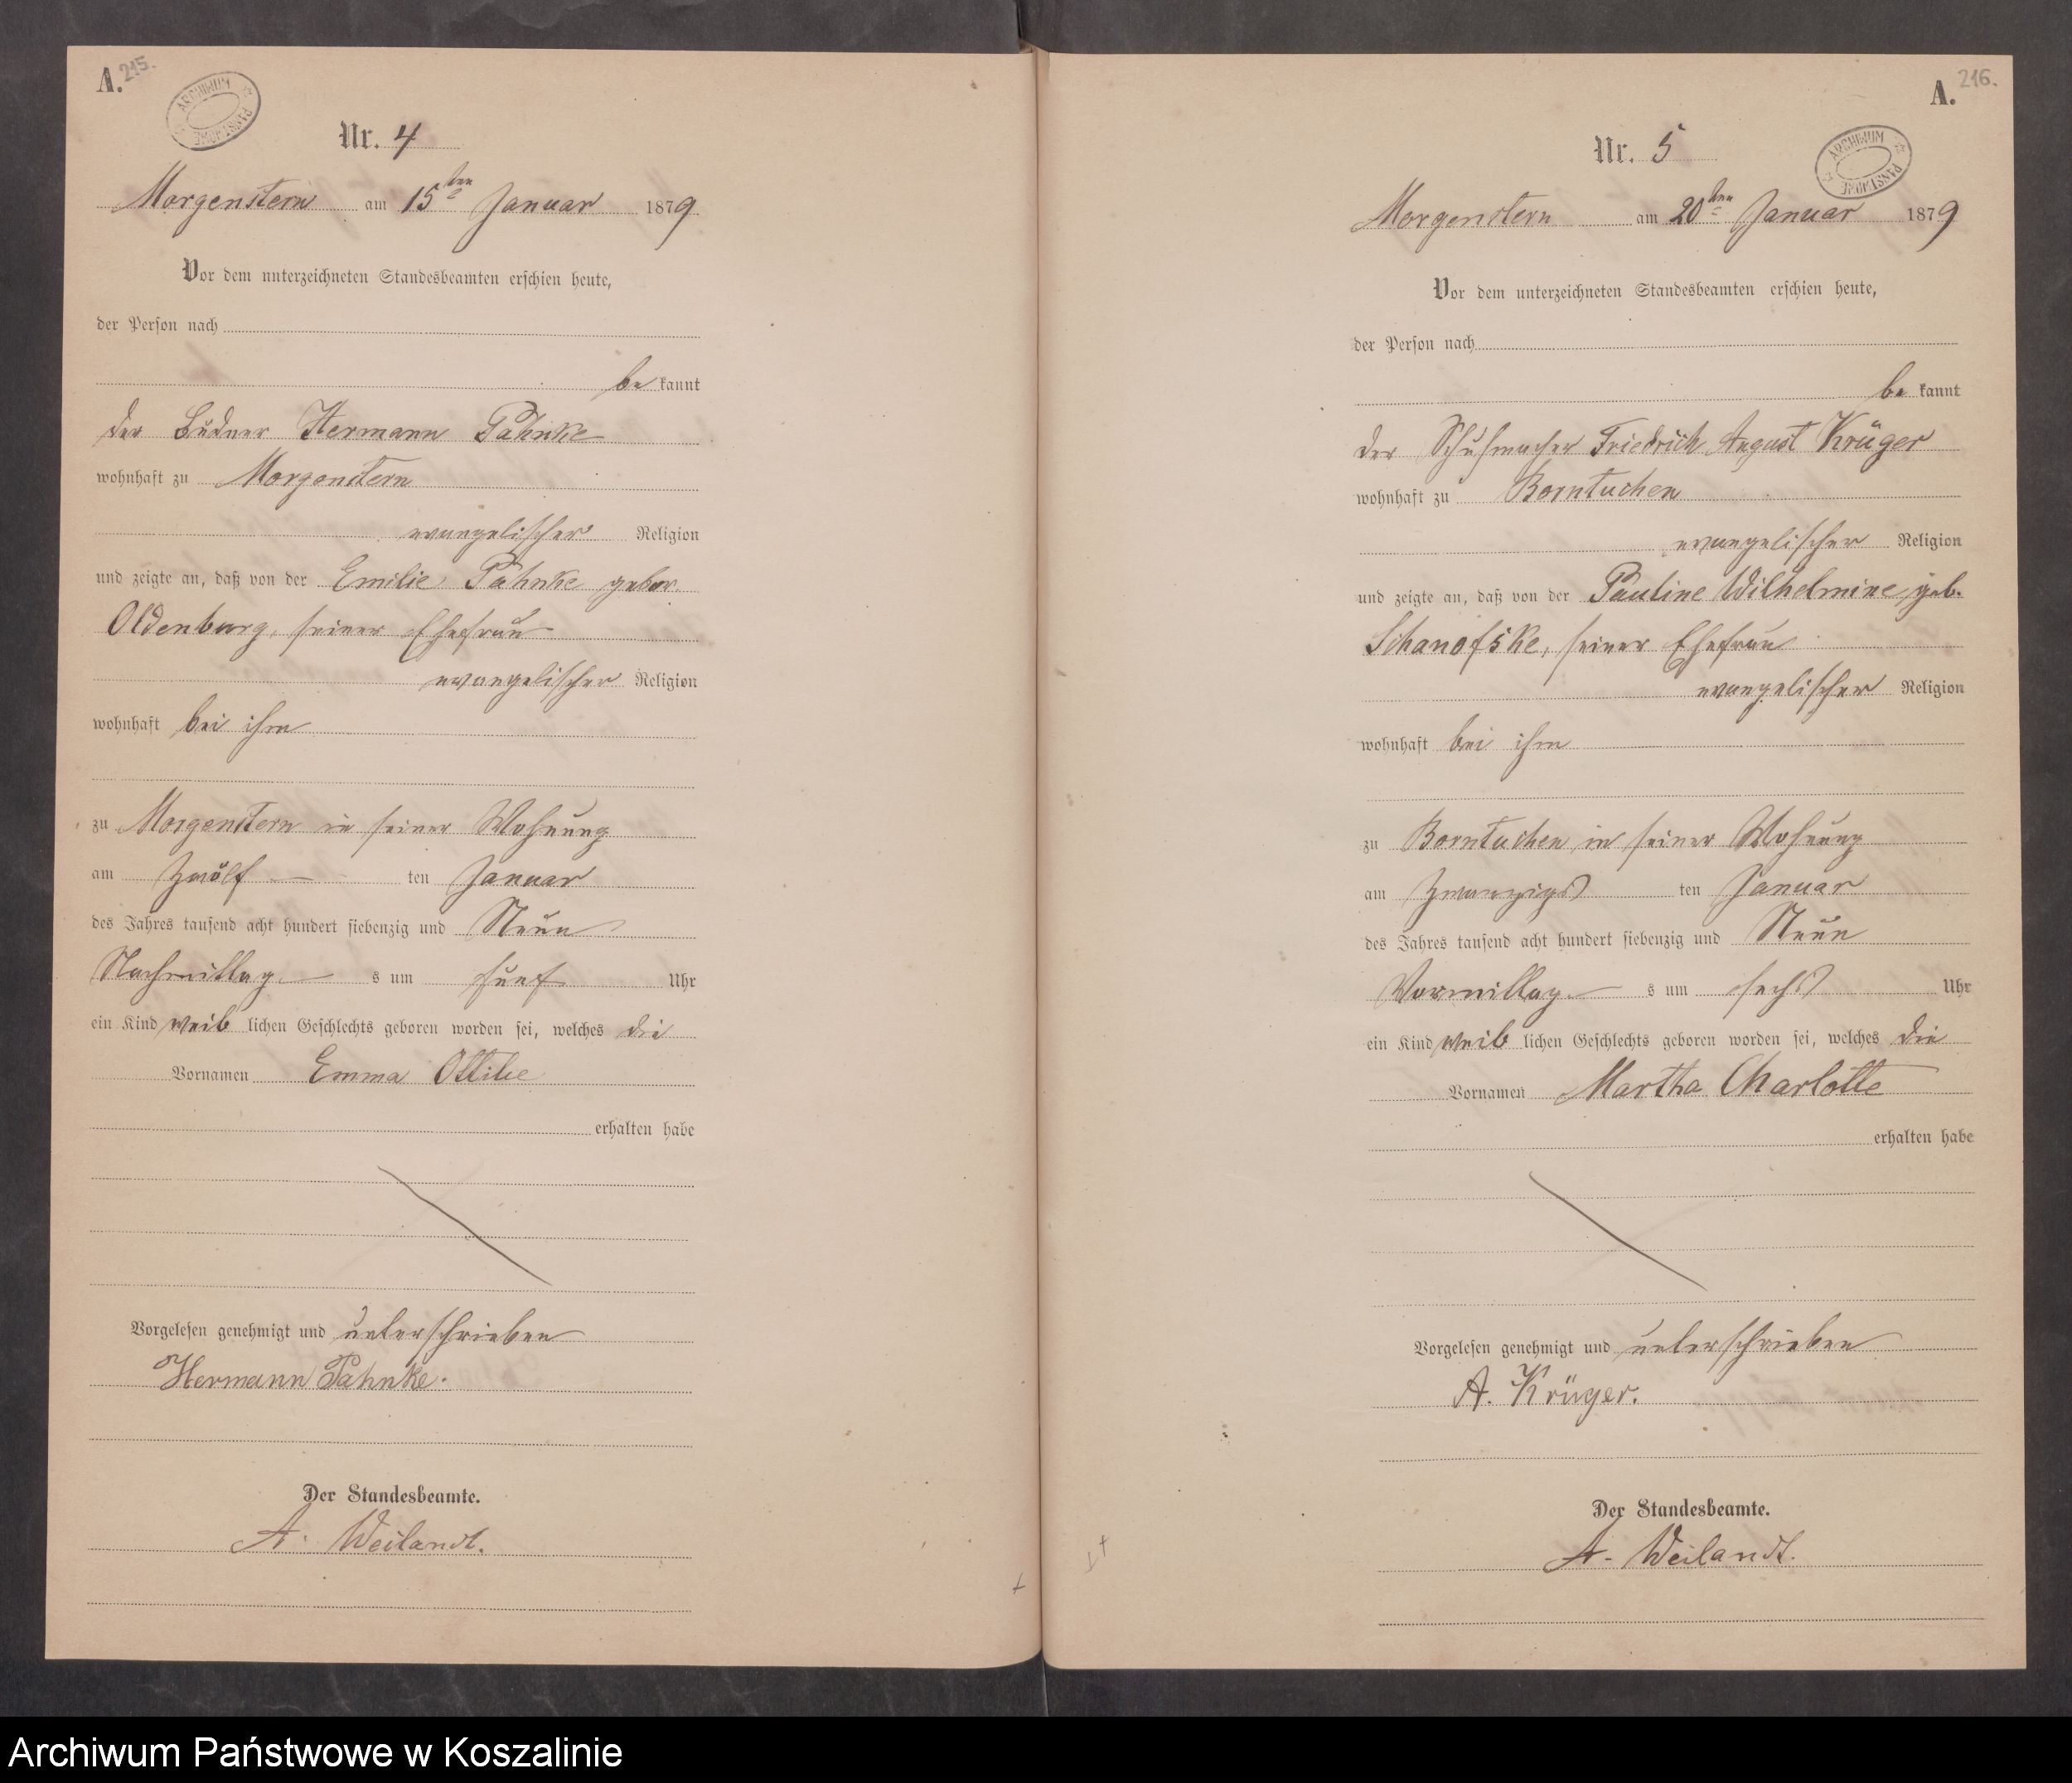 A. 215.
ARCHIWUM PAŃSTWOWE
Nr. 4
Morgenstern am 15ten Januar 1879.
Vor dem unterzeichneten Standesbeamten erschien heute,
der Person nach
be kannt
der Büdner Hermann Pahnke
wohnhaft zu Morgenstern
evangelischer Religion
und zeigte an, daß von der Emilie Pahnke gebor.
Oldenburg, seiner Ehefrau
evangelischer Religion
wohnhaft bei ihm
zu Morgenstern in seiner Wohnung
am Zwölf ten Januar
des Jahres tausend acht hundert siebenzig und Neun
Nachmittag s um fünf Uhr
ein Kind weib lichen Geschlechts geboren worden sei, welches die
Vornamen Emma Ottilie
erhalten habe
Vorgelesen genehmigt und unterschrieben
Hermann Pahnke.
Der Standesbeamte.
A. Weilandt.
A. 216.
ARCHIWUM PAŃSTWOWE
Nr. 5
Morgenstern am 20ten Januar 1879
Vor dem unterzeichneten Standesbeamten erschien heute,
der Person nach
be kannt
der Schuhmacher Friedrich August Krüger
wohnhaft zu Borntuchen
evangelischer Religion
und zeigte an, daß von der Pauline Wilhelmine, geb.
Schanofske, seiner Ehefrau
evangelischer Religion
wohnhaft bei ihm
zu Borntuchen in seiner Wohnung
am Zwanzigs ten Januar
des Jahres tausend acht hundert siebenzig und Neun
Vormittag s um sechs Uhr
ein Kind weib lichen Geschlechts geboren worden sei, welches die
Vornamen Martha Charlotte
erhalten habe
Vorgelesen genehmigt und unterschrieben
A. Krüger.
Der Standesbeamte.
A. Weilandt.
Archiwum Państwowe w Koszalinie